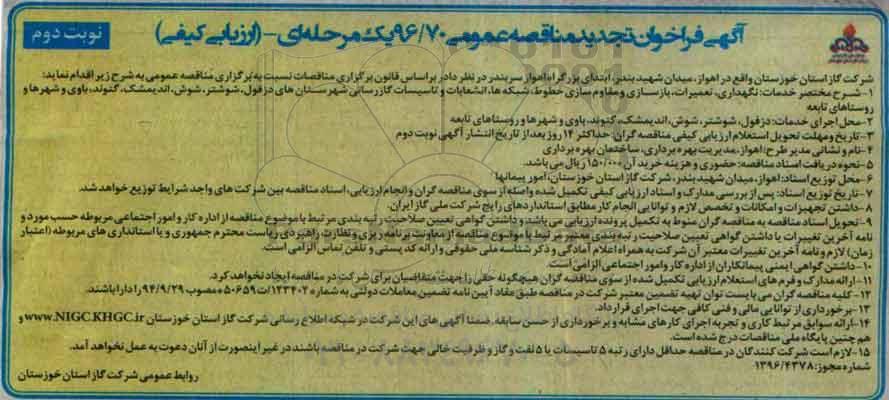 آگهی فراخوان تجدید مناقصه عمومی ۹۶/۷۰ یک مرحله‌ای - (ارزیابی کیفی)
نوبت دوم
شرکت گاز استان خوزستان واقع در اهواز، میدان شهید بندر، ابتدای بزرگراه اهواز سربندر در نظر دارد بر اساس قانون برگزاری مناقصات نسبت به برگزاری مناقصه عمومی به شرح زیر اقدام نماید:
۱- شرح مختصر خدمات: نگهداری، تعمیرات، بازسازی و مقاوم سازی خطوط، شبکه ها، انشعابات و تاسیسات گازرسانی شهرستان های دزفول، شوشتر، شوش، اندیمشک، گتوند، یاوی و شهرها و
روستاهای تابعه
۲- محل اجرای خدمات: دزفول، شوشتر، شوش، اندیمشک، گتوند، یاوی و شهرها و روستاهای تابعه
۳- تاریخ و مهلت تحویل استعلام ارزیابی کیفی مناقصه گران: حداکثر ۱۴ روز بعد از تاریخ انتشار آگهی نوبت دوم
۴- نام و نشانی مدیر طرح: اهواز، مدیریت بهره برداری، ساختمان بهره برداری
۵- نحوه دریافت اسناد مناقصه: حضوری و هزینه خرید آن ۱۵۰/۰۰۰ ریال می باشد.
۶- محل توزیع اسناد: اهواز، میدان شهید بندر، شرکت گاز استان خوزستان، امور پیمانها
۷- تاریخ توزیع اسناد: پس از بررسی مدارک و اسناد ارزیابی کیفی تکمیل شده واصله از سوی مناقصه گران و انجام ارزیابی، اسناد مناقصه بین شرکت های واجد شرایط توزیع خواهد شد.
۸- داشتن تجهیزات و امکانات و تخصص لازم و توانایی انجام کار مطابق استانداردهای رایج شرکت ملی گاز ایران.
۹- تحویل اسناد مناقصه به مناقصه گران منوط به تکمیل پرونده ارزیابی می باشد و داشتن گواهی تعیین صلاحیت رتبه بندی مرتبط با موضوع مناقصه از اداره کار و امور اجتماعی مربوطه حسب مورد و
نامه آخرین تغییرات یا داشتن گواهی تعیین صلاحیت رتبه بندی معتبر مرتبط با موضوع مناقصه از معاونت برنامه ریزی و نظارت راهبردی ریاست محترم جمهوری و یا استانداری های مربوطه (اعتبار
زمان) لازم و نامه آخرین تغییرات معتبر آن شرکت به همراه اعلام آمادگی و ذکر شناسه ملی حقوقی و ارائه کد پستی و تلفن تماس الزامی است.
۱۰- داشتن گواهی ایمنی پیمانکاران از اداره کار و امور اجتماعی الزامی است.
۱۱- ارائه مدارک و فرم های استعلام ارزیابی تکمیل شده از سوی مناقصه گران هیچگونه حقی را جهت متقاضیان برای شرکت در مناقصه ایجاد نخواهد کرد.
۱۲- کلیه مناقصه گران می بایست توان تهیه تضمین معتبر شرکت در مناقصه طبق مفاد آیین نامه تضمین معاملات دولتی به شماره ۱۲۳۴۰۲/ت۵۰۶۵۹ه مصوب ۹۴/۹/۲۹ را دارا باشند.
۱۳- برخورداری از توانایی مالی و فنی کافی جهت اجرای قرارداد.
۱۴- ارائه سوابق مرتبط کاری و تجربه اجرای کارهای مشابه و برخورداری از حسن سابقه. ضمنا آگهی های این شرکت در شبکه اطلاع رسانی شرکت گاز استان خوزستان www.NIGC.KHGC.ir و
هم چنین پایگاه ملی مناقصات درج شده است.
۱۵- لازم است شرکت کنندگان در مناقصه حداقل دارای رتبه ۵ تاسیسات یا ۵ نفت و گاز و ظرفیت خالی جهت شرکت در مناقصه باشند در غیر اینصورت از آنان دعوت به عمل نخواهد آمد.
شماره مجوز: ۱۳۹۶/۴۳۷۸
روابط عمومی شرکت گاز استان خوزستان